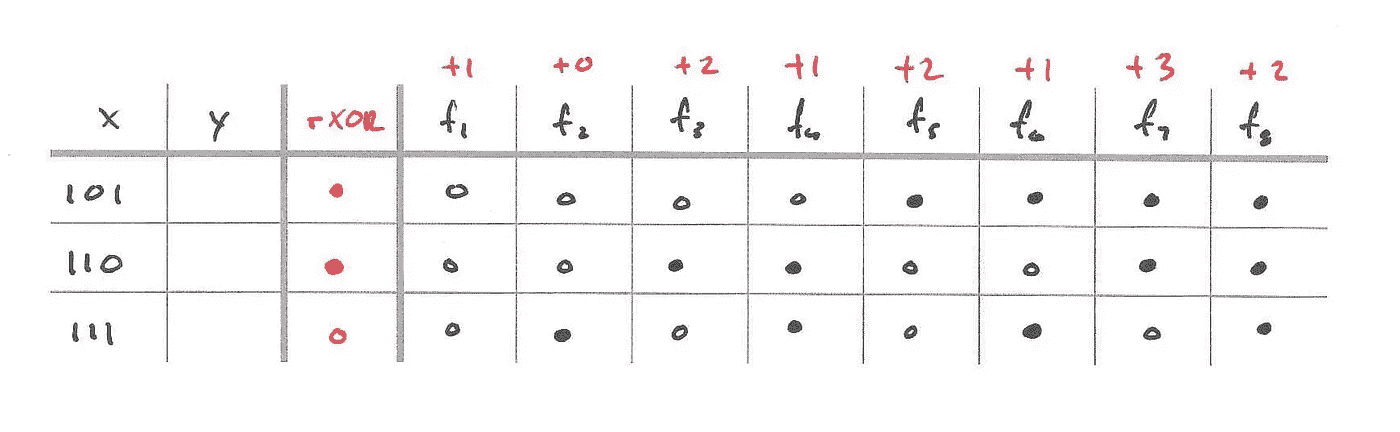 +1 +0 +2 +1 +2 +1 +3 +2
x y rXOR f₁ f₂ f₃ f₄ f₅ f₆ f₇ f₈
101 ● ○ ○ ○ ○ ● ● ● ●
110 ● ○ ○ ● ● ○ ○ ● ●
111 ○ ○ ● ○ ● ○ ● ○ ●